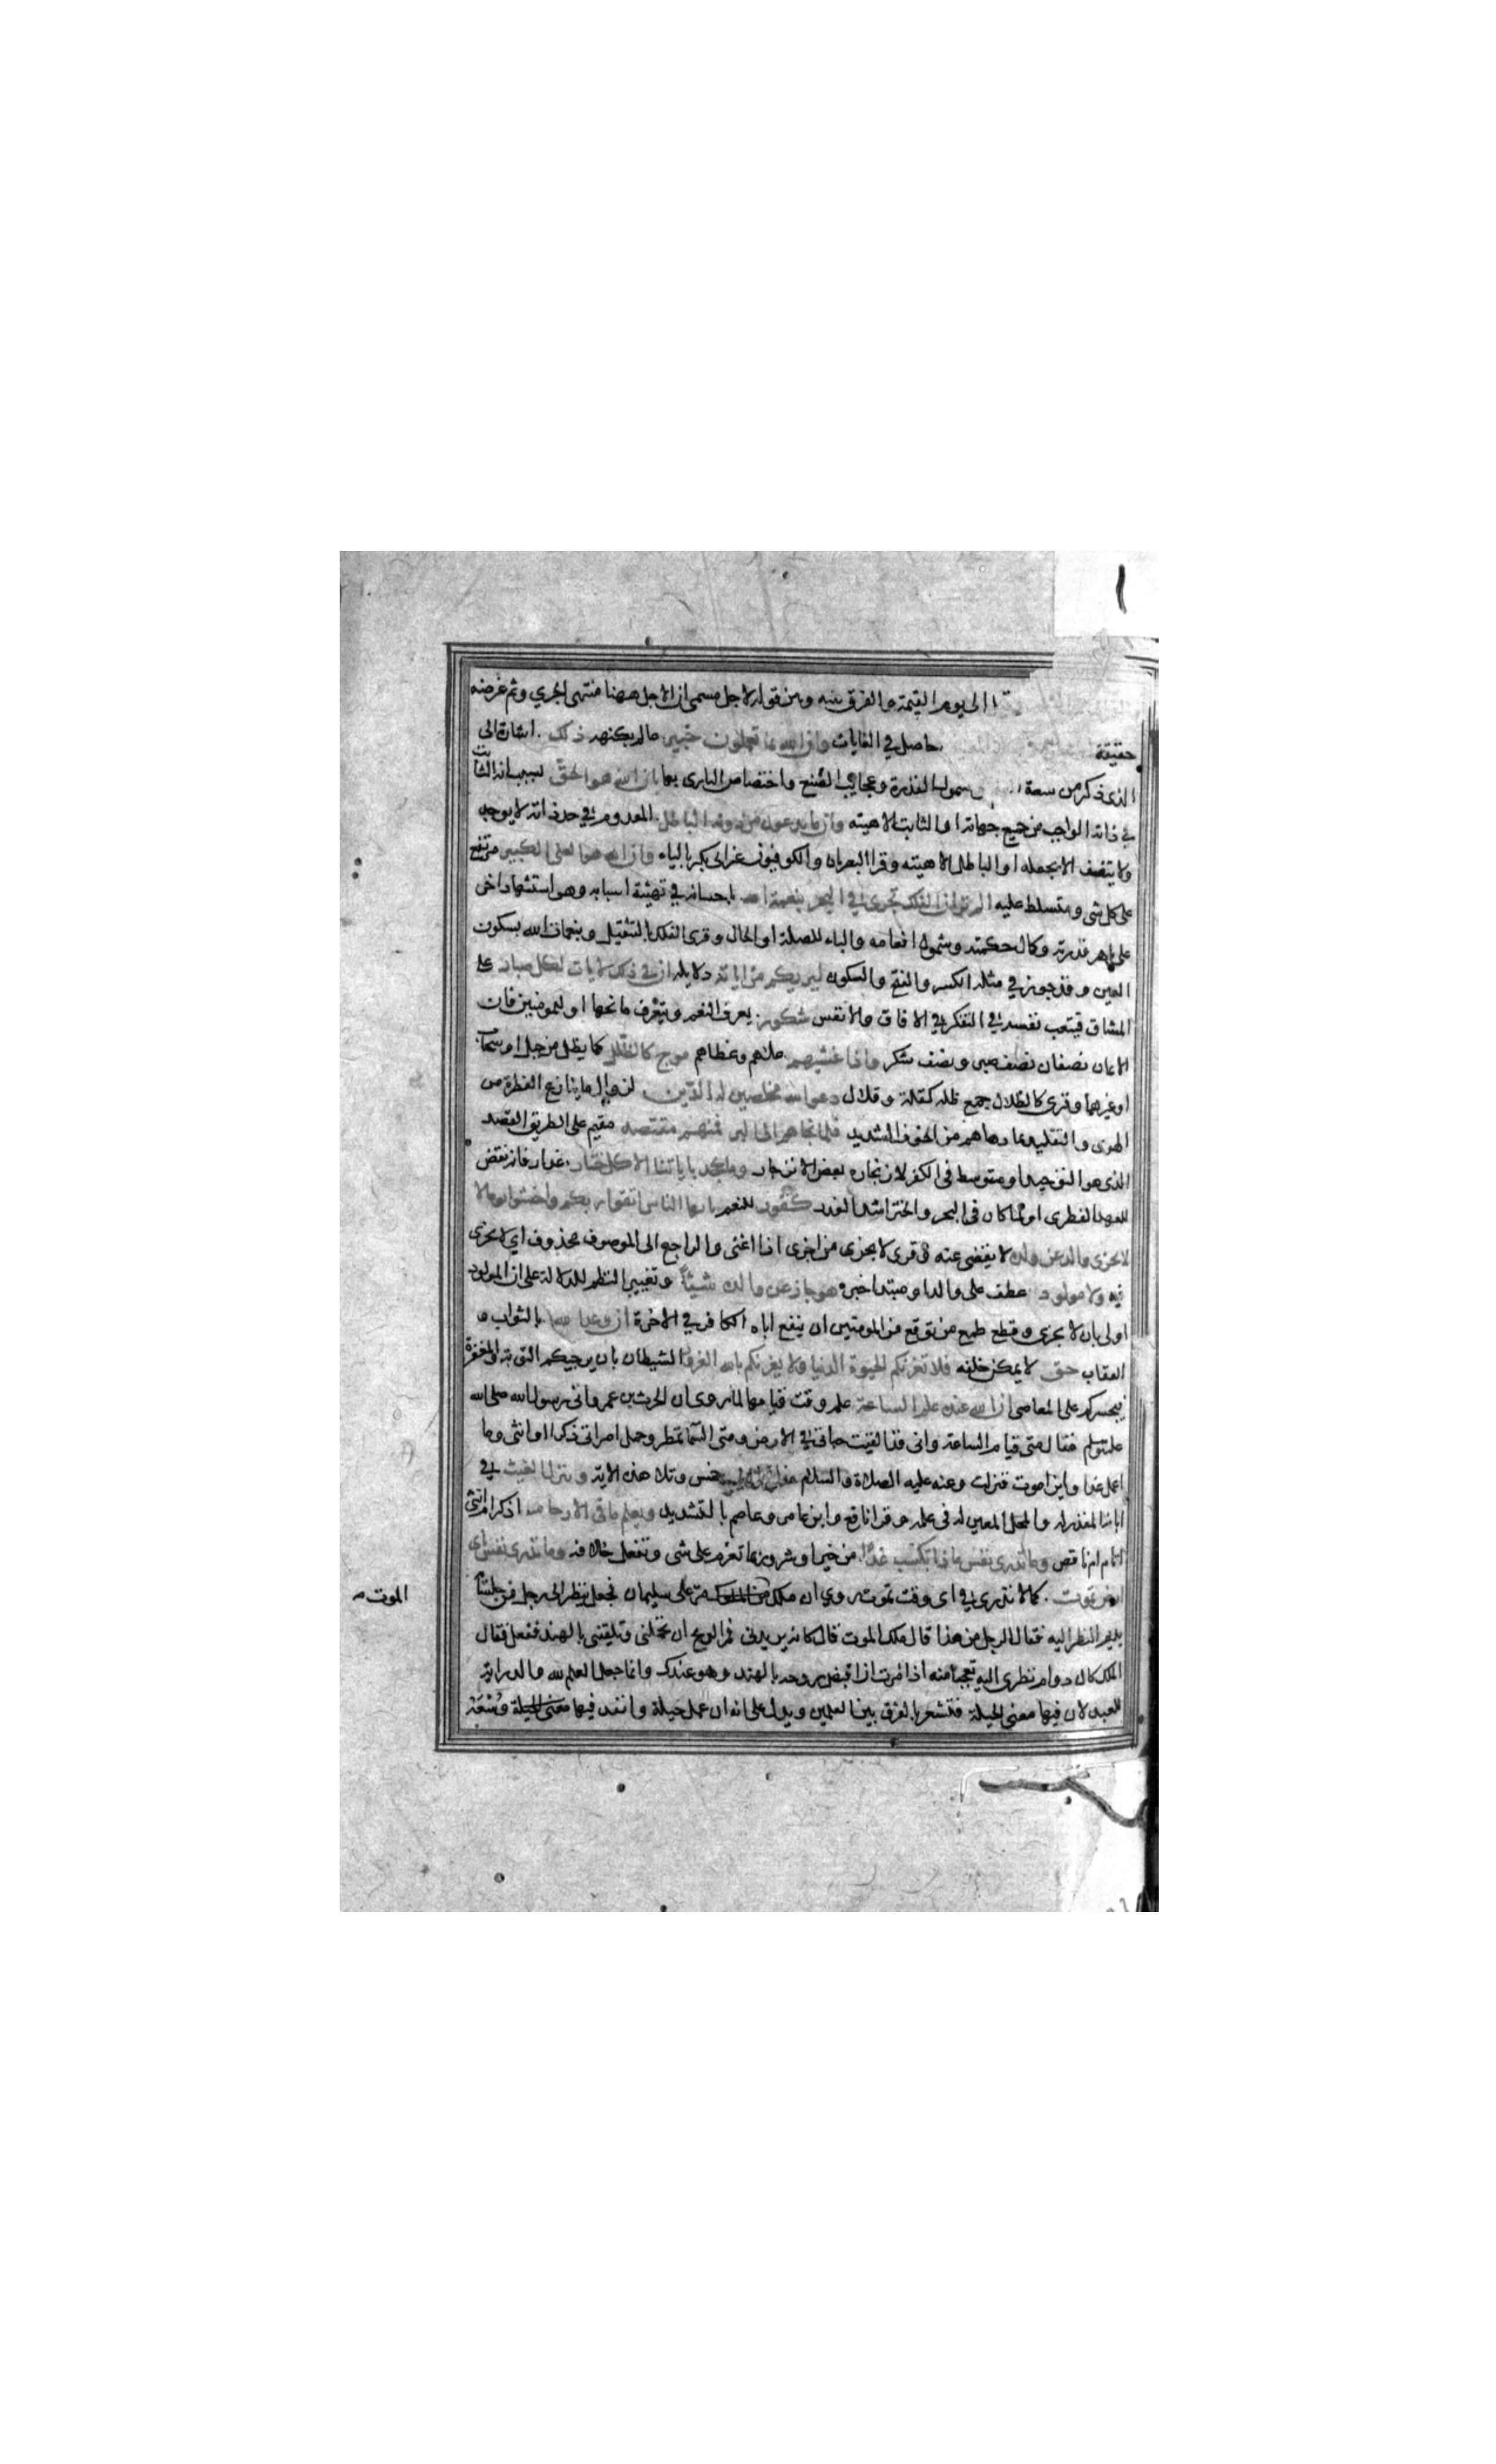 الى يوم القيمة والفرق بينه وبين قوله لاجل مسمى ان الاجل ههنا منتهى الجري وثم غرضه
حقيقة حاصل في الغايات وان الله بما تعملون خبير عالم بكنهه ذلك اشارة الى
الذي ذكر من سعة وشمول القدرة وعجايب الصنع واختصاص البارى بها بان الله هو الحق بسبب انه الثابت
في ذاته الواجب من جميع جهاته او الثابت الاهيته وان ما يدعون من دونه الباطل المعدوم في حد ذاته لا يوجد
ولا يتصف الا بجعله او الباطل الاهيته وقرا البصريان والكوفيون غير ابى بكر بالياء وان الله هو العلى الكبير مترفع
على كل شى ومتسلط عليه الم تر ان الفلك تجرى في البحر بنعمة الله باحسانه في تهيئة اسبابه وهو استشهاد اخر
على باهر قدرته وكمال حكمته وشمول انعامه والباء للصلة او الحال وقرى الفلك بالتثقيل وبنعمات الله بسكون
العين وقد جوز في مثله الكسر والفتح والسكون ليريكم من اياته دلايله ان في ذلك لايات لكل صبار على
المشاق فيتعب نفسه في التفكر في الافاق والانفس شكور يعرف النعم ويتعرف مانحها او للمومنين فان
الايمان نصفان نصف صبر ونصف شكر واذا غشيهم علاهم وغطاهم موج كالظلل كما يظل من جبل او سحاب
او غيرهما وقرى كالظلال جمع ظلة كقلة وقلال دعوا الله مخلصين له الدين لزوال ما ينازع الفطرة من
الهوى والتقليد بما دهاهم من الخوف الشديد فلما نجاهم الى البر فمنهم مقتصد مقيم على الطريق القصد
الذى هو التوحيد او متوسط في الكفر لانزجاره بعض الانزجار وما يجحد باياتنا الا كل ختار غدار فانه نقض
للعهد الفطرى او لما كان فى البحر والختر اشد الغدر كفور للنعم يا ايها الناس اتقوا ربكم واخشوا يوما لا
لا يجزى والد عن ولده لا يقضى عنه وقرى لا يجزى من اجزى اذا اغنى والراجع الى الموصوف محذوف اي لا يجزى
فيه ولا مولود عطف على والد او مبتدا خبره هو جاز عن والده شيئا وتغيير النظم للدلالة على ان المولود
اولى بان لا يجزى وقطع طمع من توقع من المومنين ان ينفع اباه الكافر في الاخرة ان وعد الله بالثواب و
العقاب حق لا يمكن خلفه فلا تغرنكم الحيوة الدنيا ولا يغرنكم بالله الغرور الشيطان بان يرجيكم التوبة والمغفرة
فيجسركم على المعاصى ان الله عنده علم الساعة علم وقت قيامها لما روى ان الحرث بن عمرو اتى رسول الله صلى الله
عليه وسلم فقال متى قيام الساعة وانى قد القيت حباتي في الارض ومتى السما تمطر وحمل امراتى ذكر او انثى وما
اعمل غدا واين اموت فنزلت وعنه عليه الصلاة والسلام مفاتح الغيب خمس وتلا هذه الاية وينزل الغيث في
ابانه المقدر له والمحل المعين له فى علمه وقرا نافع وابن عامر وعاصم بالتشديد ويعلم ما فى الارحام اذكر ام انثى
اتام ام ناقص وما تدرى نفس ماذا تكسب غدا من خير او شر وربما تعزم على شى وتفعل خلافه وما تدرى نفس باى
ارض تموت كما لا تدرى في اى وقت تموت روي ان ملك مر على سليمان فجعل ينظر الى رجل من جلسائه
الموت
يديم النظر اليه فقال الرجل من هذا قال ملك الموت قال كانه يريدنى فمر الريح ان تحملنى وتلقينى بالهند ففعل فقال
الملك كان دوام نظرى اليه تعجبا منه اذ امرت ان اقبض روحه بالهند وهو عندك وانما جعل العلم لله والدراية
للعبد لان فيها معنى الحيلة فتشعر بالفرق بين العلمين ويدل على انه ان عمل حيلة وانفد فيها